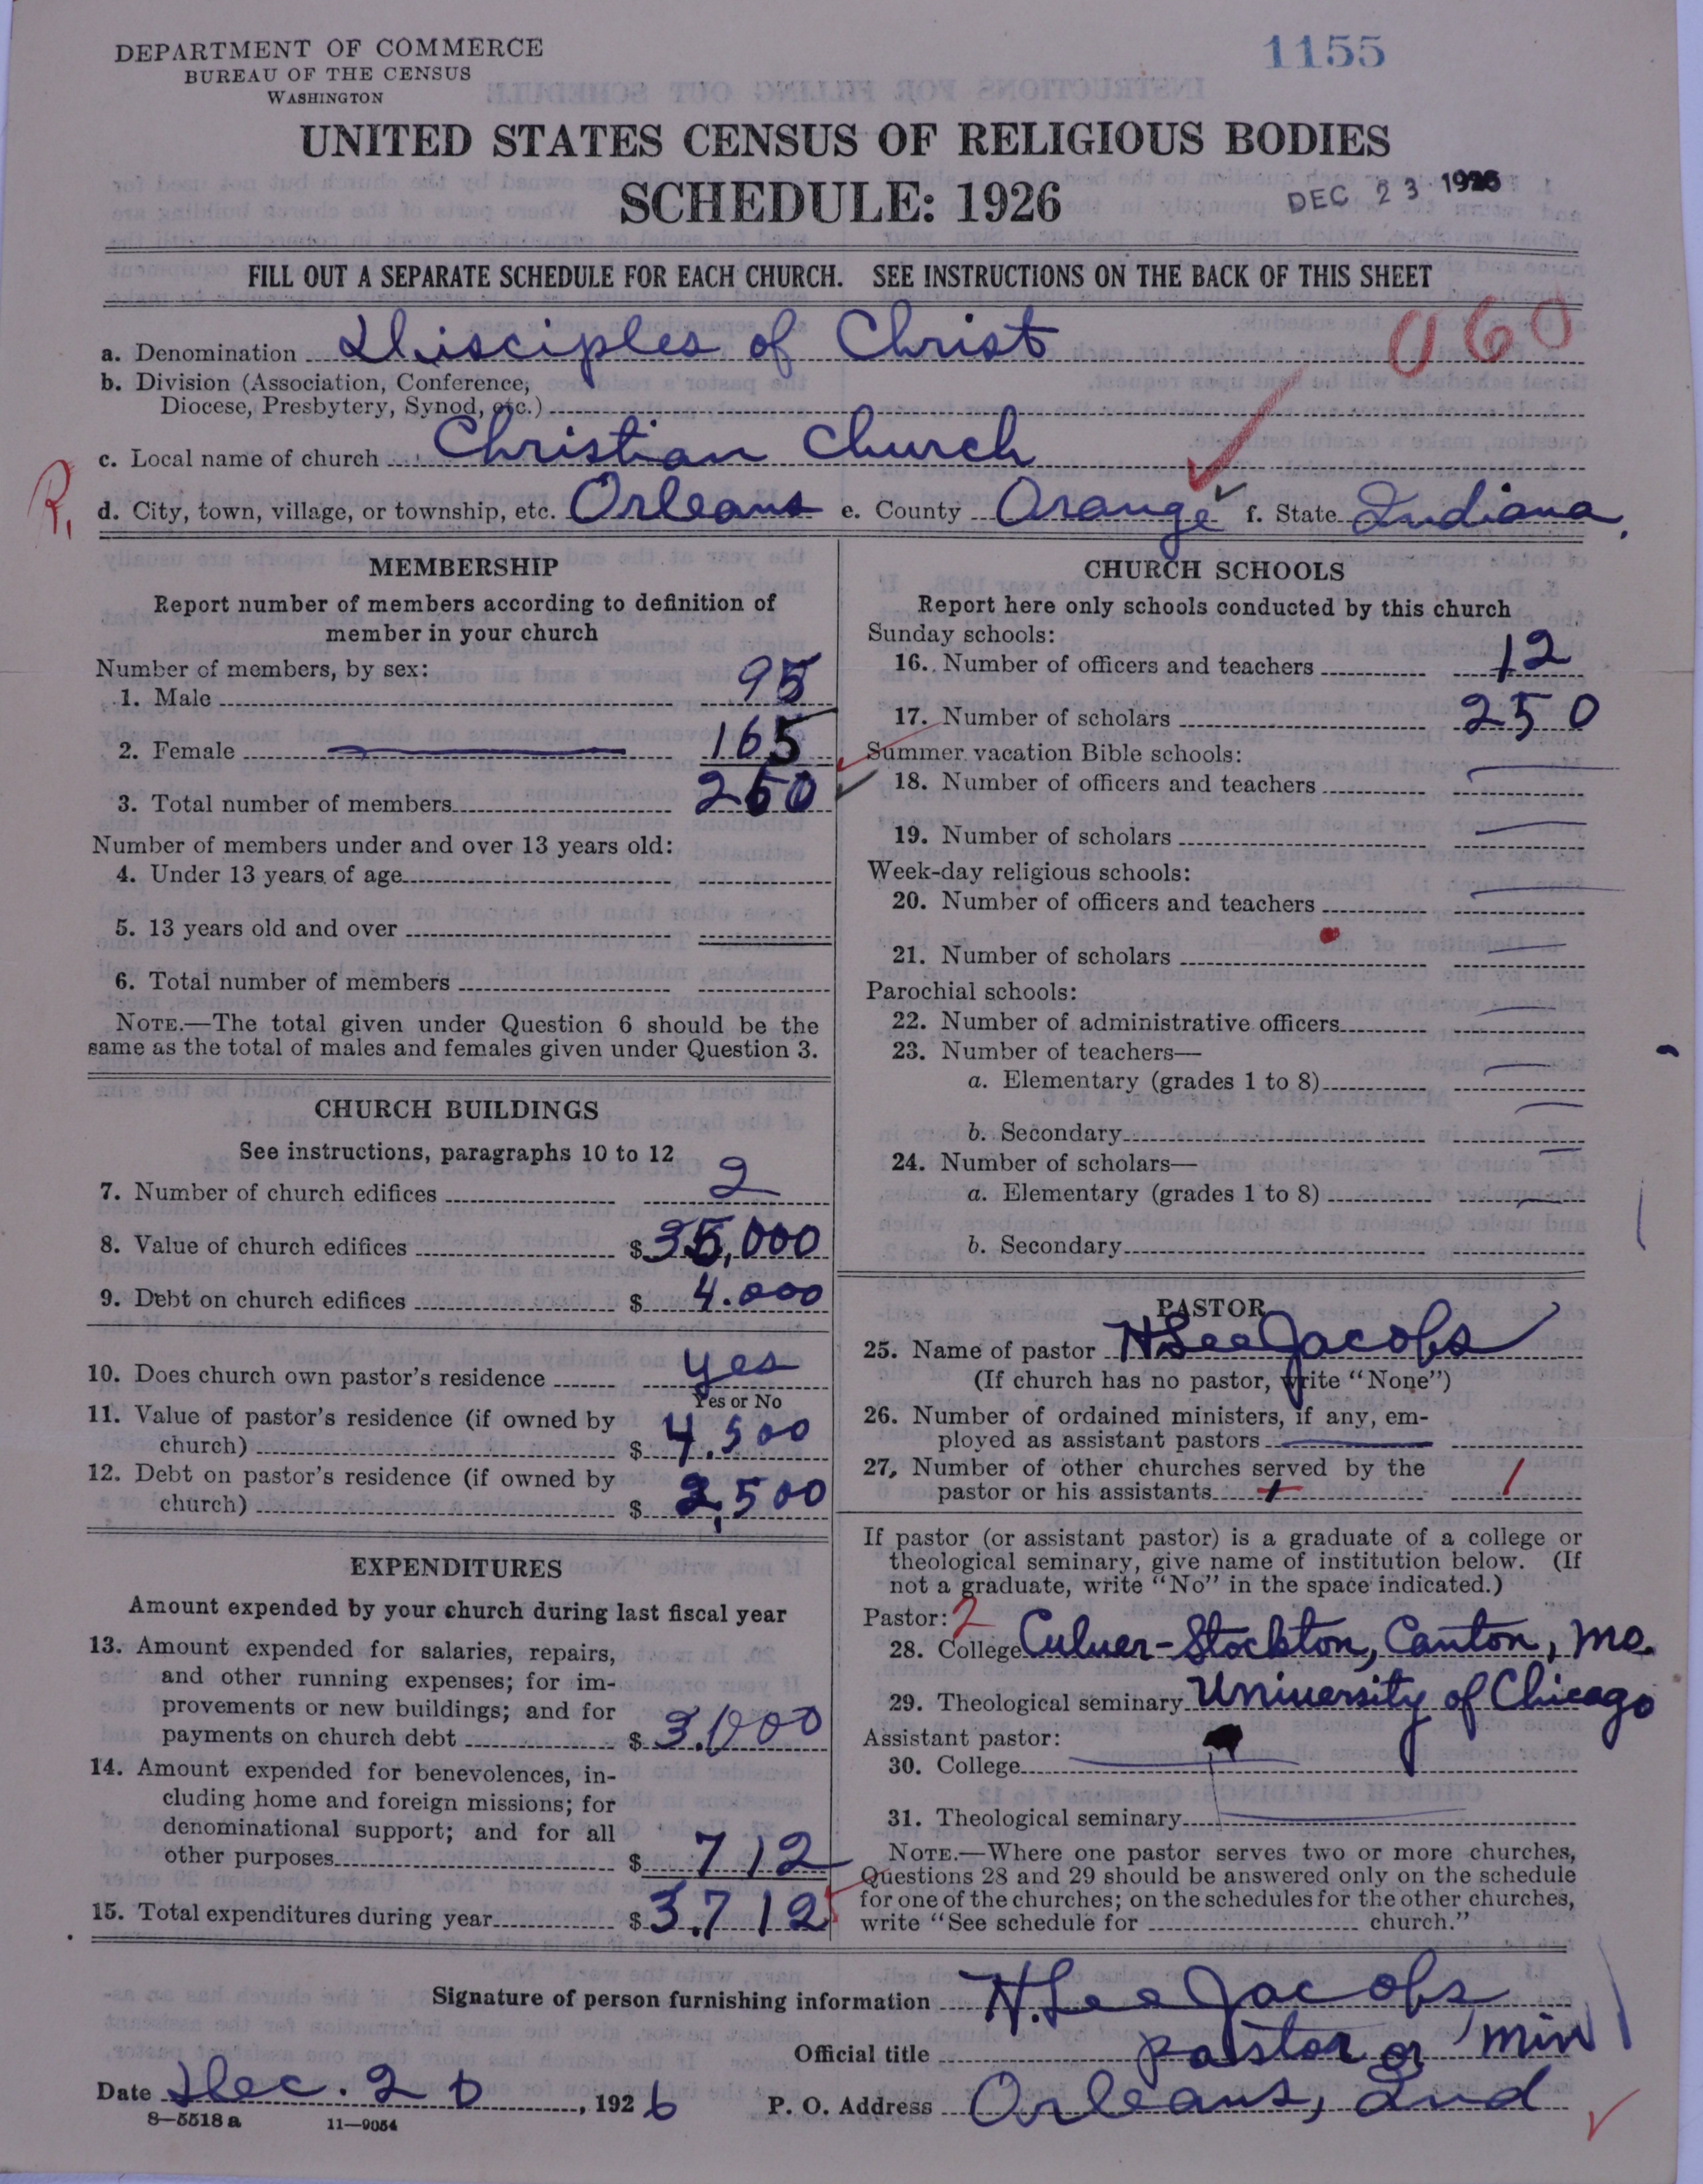 DEPARTMENT OF COMMERCE
BUREAU OF THE CENSUS
WASHINGTON
1155
UNITED STATES CENSUS OF RELIGIOUS BODIES
SCHEDULE: 1926
DEC 23 1926
FILL OUT A SEPARATE SCHEDULE FOR EACH CHURCH. SEE INSTRUCTIONS ON THE BACK OF THIS SHEET
060
a. Denomination Disciples of Christ
b. Division (Association, Conference,
Diocese, Presbytery, Synod, etc.)
c. Local name of church Christian Church
R.
d. City, town, village, or township, etc. Orleans e. County Orange f. State Indiana
MEMBERSHIP
Report number of members according to definition of
member in your church
Number of members, by sex:
1. Male 95
2. Female 165
3. Total number of members 260
Number of members under and over 13 years old:
4. Under 13 years of age
5. 13 years old and over
6. Total number of members
NOTE.—The total given under Question 6 should be the
same as the total of males and females given under Question 3.
CHURCH BUILDINGS
See instructions, paragraphs 10 to 12
7. Number of church edifices 2
8. Value of church edifices $ 35,000
9. Debt on church edifices $ 4.000
10. Does church own pastor's residence yes
Yes or No
11. Value of pastor's residence (if owned by
church) $ 4.500
12. Debt on pastor's residence (if owned by
church) $ 2,500
EXPENDITURES
Amount expended by your church during last fiscal year
13. Amount expended for salaries, repairs,
and other running expenses; for im-
provements or new buildings; and for
payments on church debt $ 3.000
14. Amount expended for benevolences, in-
cluding home and foreign missions; for
denominational support; and for all
other purposes $ 712
15. Total expenditures during year $ 3.712
CHURCH SCHOOLS
Report here only schools conducted by this church
Sunday schools:
16. Number of officers and teachers 12
17. Number of scholars 250
Summer vacation Bible schools:
18. Number of officers and teachers
19. Number of scholars
Week-day religious schools:
20. Number of officers and teachers
21. Number of scholars
Parochial schools:
22. Number of administrative officers
23. Number of teachers—
a. Elementary (grades 1 to 8)
b. Secondary
24. Number of scholars—
a. Elementary (grades 1 to 8)
b. Secondary
PASTOR
25. Name of pastor H Lee Jacobs
(If church has no pastor, write "None")
26. Number of ordained ministers, if any, em-
ployed as assistant pastors
27. Number of other churches served by the
pastor or his assistants 1
If pastor (or assistant pastor) is a graduate of a college or
theological seminary, give name of institution below. (If
not a graduate, write "No" in the space indicated.)
Pastor: 2
28. College Culver-Stockton, Canton, Mo.
29. Theological seminary University of Chicago
Assistant pastor:
30. College
31. Theological seminary
NOTE.—Where one pastor serves two or more churches,
Questions 28 and 29 should be answered only on the schedule
for one of the churches; on the schedules for the other churches,
write "See schedule for church."
Signature of person furnishing information H. Lee Jacobs
Official title pastor or min
Date Dec. 20, 1926 P. O. Address Orleans, Ind
8—5518 a 11—9054